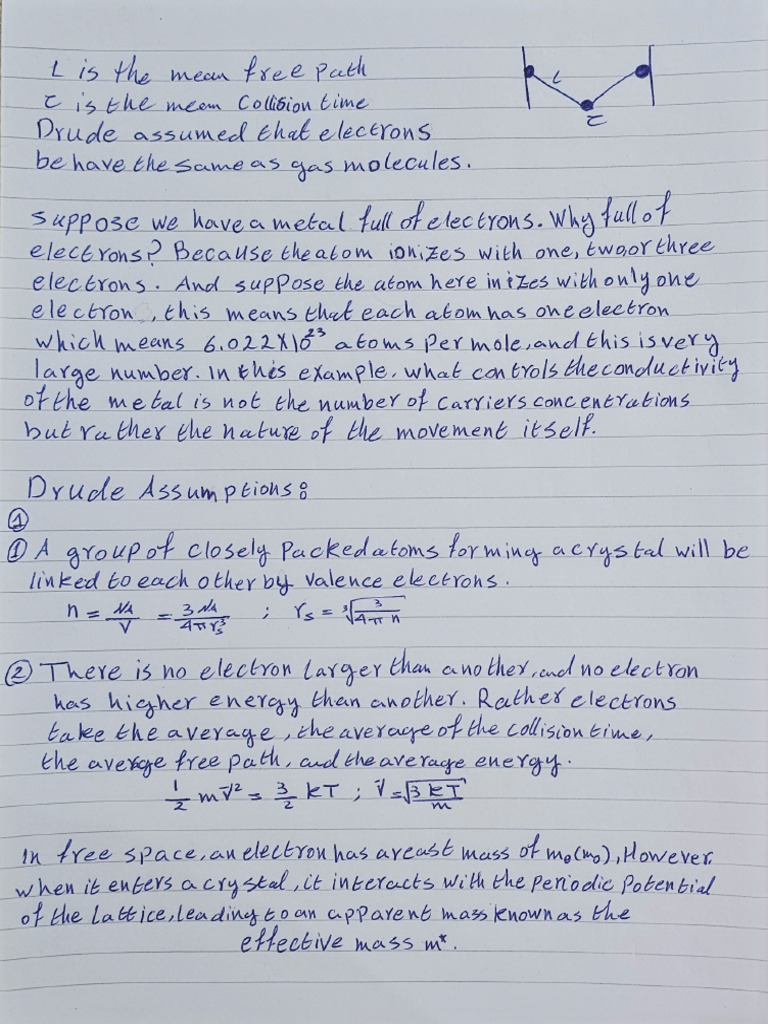 L is the mean free path
L
τ is the meem Collision time
τ
Drude assumed that electrons
be have the same as gas molecules.
suppose we have a metal full of electrons. Why full of
electrons? Because the atom ionizes with one, two, or three
electrons. And suppose the atom here inizes with only one
electron, this means that each atom has one electron
which means 6.022X10²³ atoms per mole, and this is very
large number. In this example, what controls the conductivity
of the metal is not the number of carriers concentrations
but rather the nature of the movement itself.
Drude Assumptions:
①
① A group of closely Packed atoms forming a crystal will be
linked to each other by valence electrons.
n = NA/V = 3 NA/4π rs³ ; rs = ∛(3/4π n)
② There is no electron larger than another, and no electron
has higher energy than another. Rather electrons
take the average, the average of the collision time,
the average free path, and the average energy.
1/2 mv̄² = 3/2 kT ; v̄ = √(3 kT/m)
In free space, an electron has a reast mass of m₀ (m₀), However,
when it enters a crystal, it interacts with the periodic potential
of the lattice, leading to an apparent mass known as the
effective mass m*.